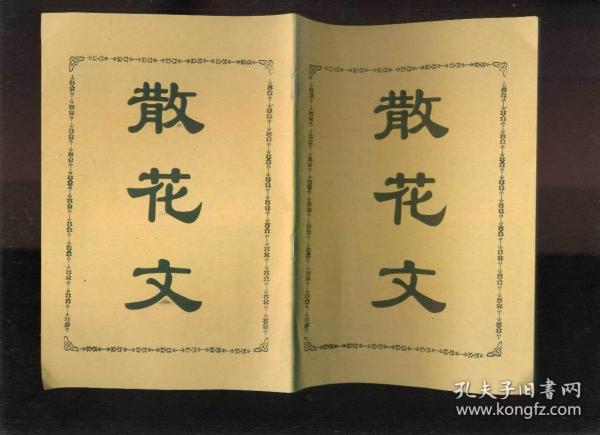 散花文
散花文
孔夫子旧書网
www.kongfz.com